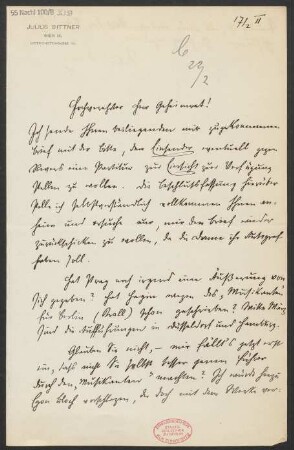 55 Nachl 100/B
JULIUS BITTNER
WIEN III.
17/2 II
22/2
Hochverehrter Herr Geheimrat!
Ich sende Ihnen beiliegenden mir zugekommenen
Brief mit der Bitte, dem Einsender eventuell gegen
Revers eine Partitur zur Einsicht zur Verfügung
stellen zu wollen. Die Beschlußfassung hierüber
stelle ich selbstverständlich vollkommen Ihnen an-
heim und ersuche nur, mir den Brief wieder
zurückschicken zu wollen, da die Dame ihr Autograf
haben soll.
Hat Prag noch irgend eine Äußerung von
sich gegeben? Hat Hagin wegen des „Musikanten"
für Berlin schon geschrieben? Wie
sind die Aufführungen in Düsseldorf und Hamburg.
Glauben Sie nicht, – mir fällt's jetzt erst
ein, daß nicht Sie selbst besser einen Führer
durch den „Musikanten" machen? Ich würde hiezu
Egon Bloch vorschlagen, da doch mit dem Werke ver-